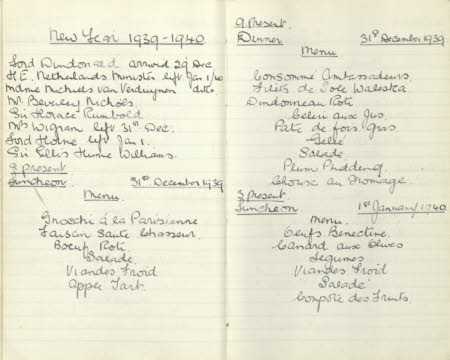 New Year 1939-1940
Lord Dundonald arrived 29 Dec
H.E. Netherlands Minister left Jan 1/40
Mdme Michiels van Verduynen ditto
Mr. Beverley Nichols.
Sir Horace Rumbold
Mrs Wigram left 31st Dec.
Lord Horne left Jan 1.
Sir Ellis Hume Williams.
8 present
Luncheon 31st December 1939
Menu.
Gnocchi á la Parisienne
Faisan Sauté Chasseur.
Boeuf Roti
Salade
Viandes Froid
Apple Tart.
9 Present.
Dinner 31st December 1939
Menu
Consommé Ambassadeurs.
Filets de Sole Waleska
Dindonneau Rôte
Celeri aux Jus.
Pate de fois Gras
Gelée
Salade
Plum Pudding
au Fromage.
8 Present
Luncheon 1st January 1940
Menu.
Oeufs Benectine.
Canard aux Olives
Legumes
Viandes Froid
Salade
Compote des Fruits